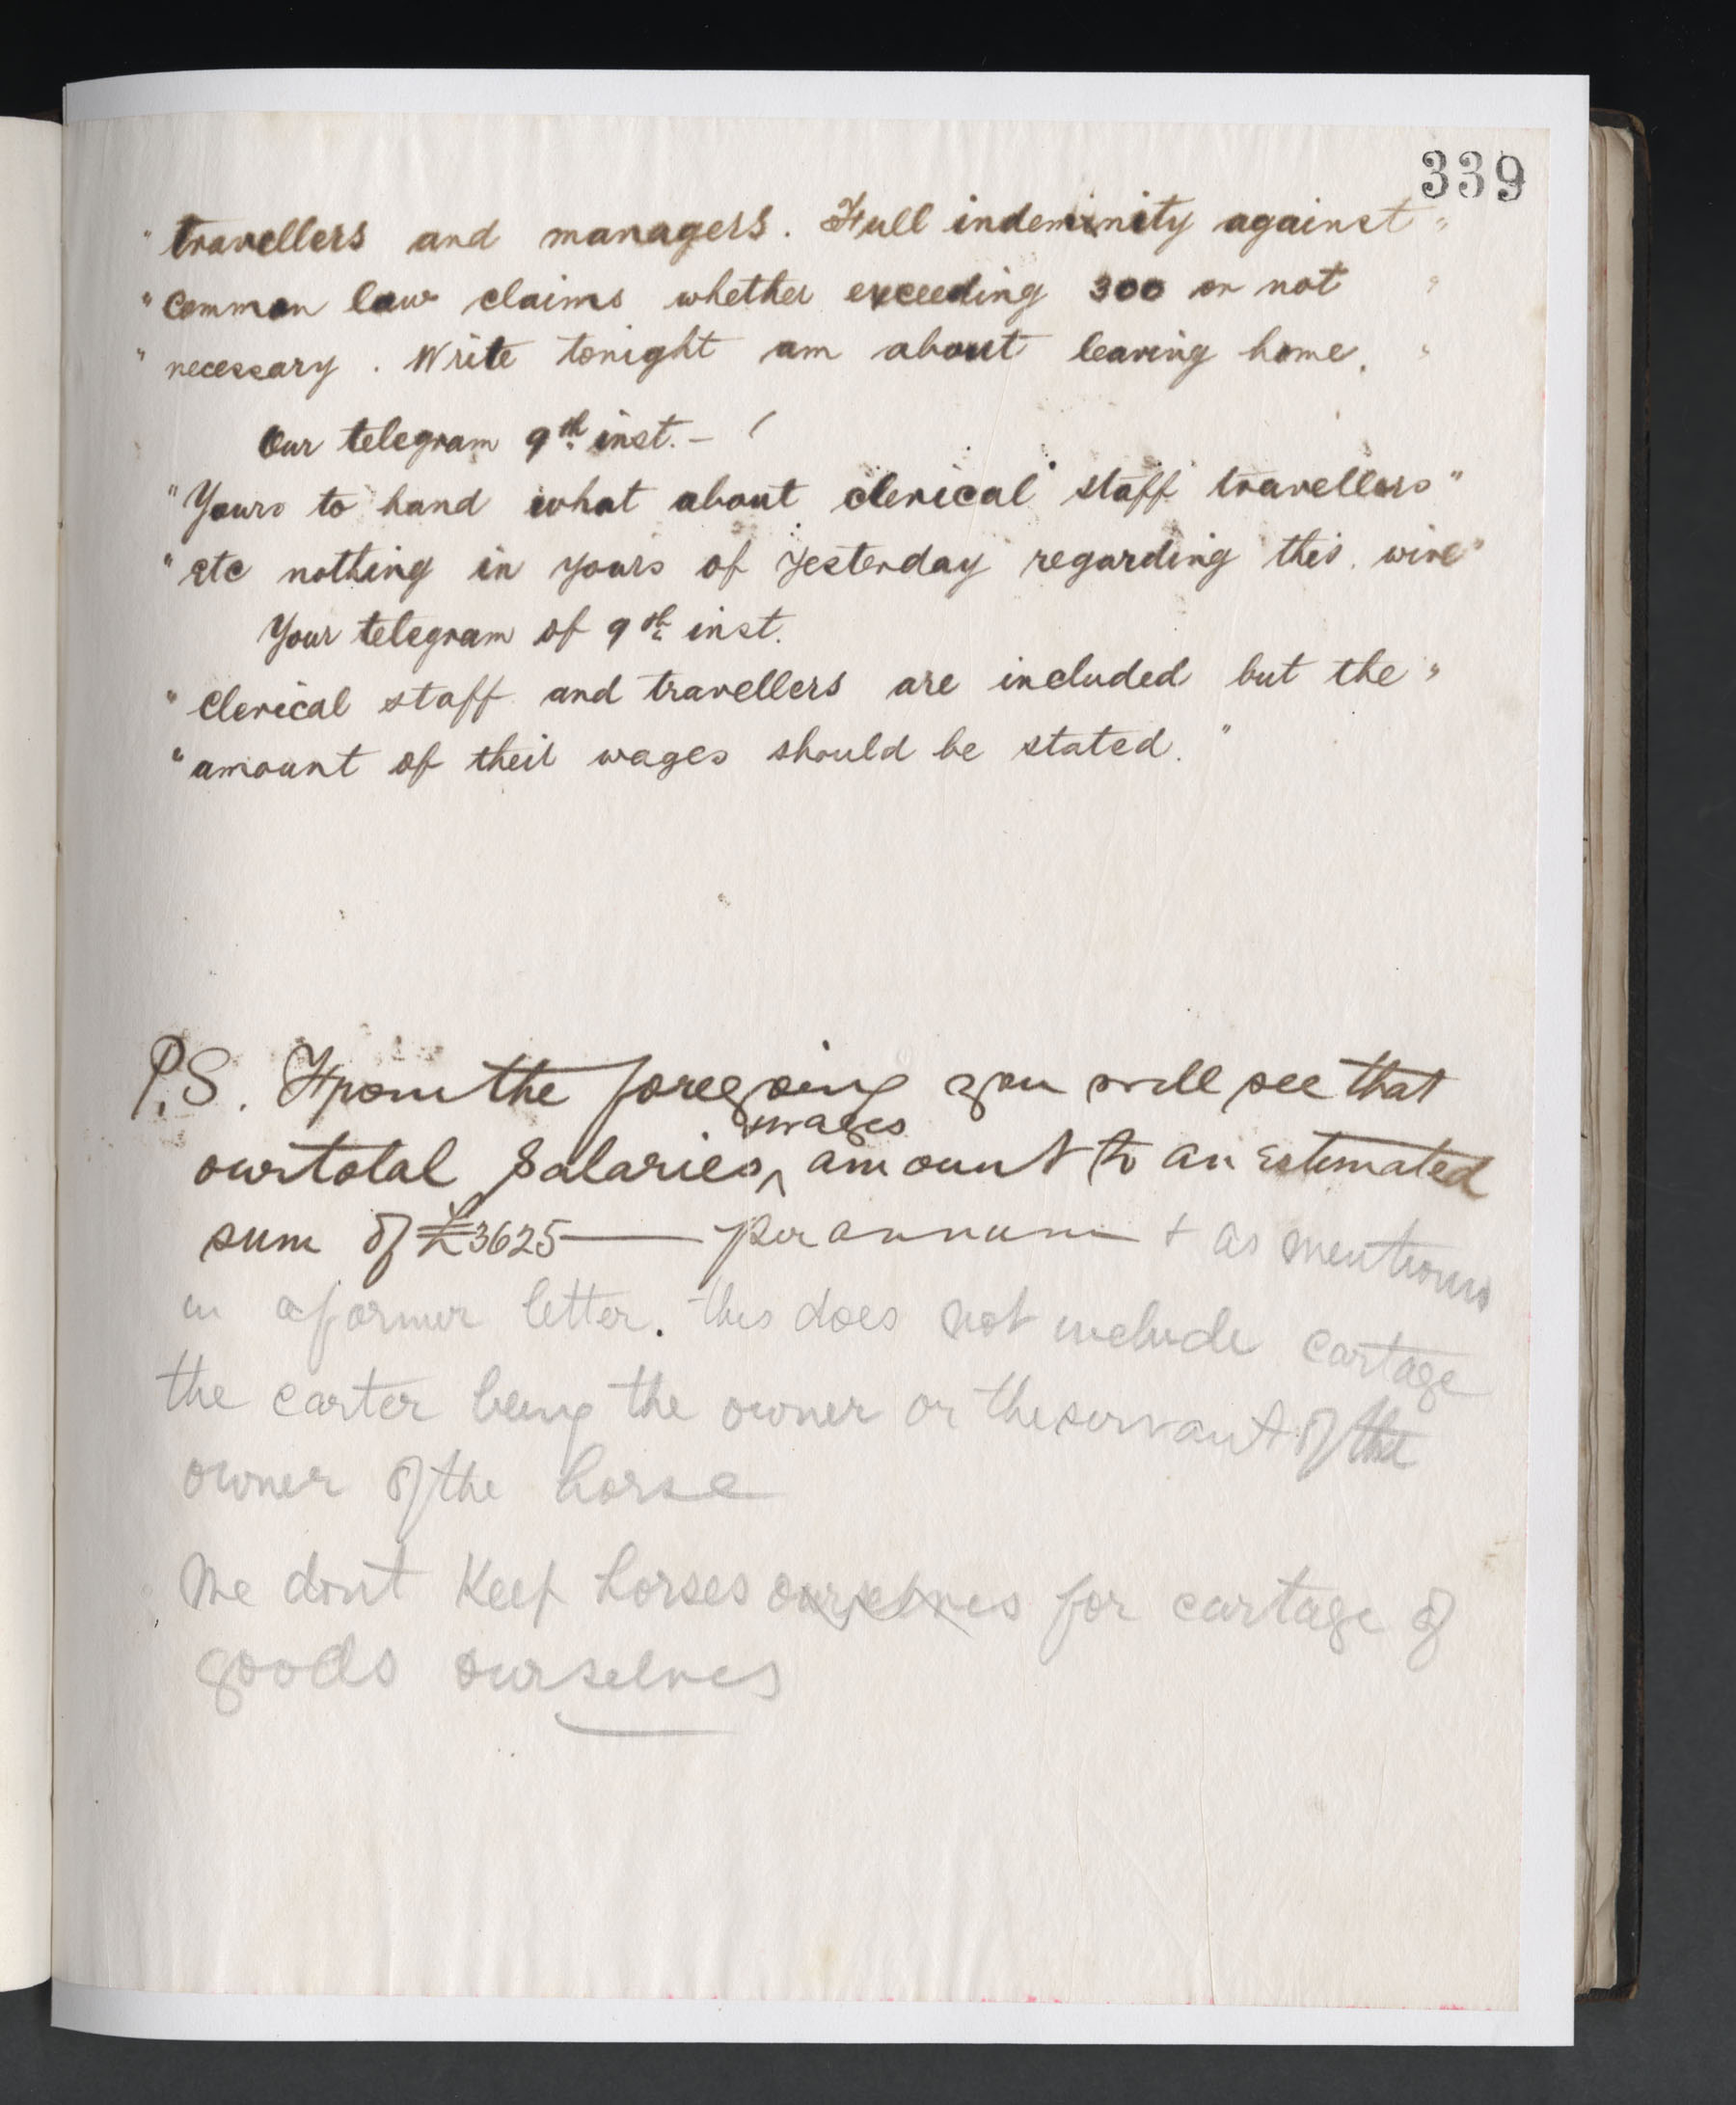 339
"travellers and managers. Full indemnity against"
"common law claims whether exceeding 300 or not"
"necessary. Write tonight am about leaving home."
Our telegram 9th inst. –
"Yours to hand what about clerical staff travellers"
"etc nothing in yours of yesterday regarding this. wire"
Your telegram of 9th inst.
"Clerical staff and travellers are included but the"
"amount of their wages should be stated."
P.S. From the foregoing you will see that
wages
our total Salaries ^ amount to an Estimated
sum of £3625 — per annum + as mentioned
in a former letter. this does not include cartage
the carter being the owner or the servant of the
owner of the horse
We dont Keep horses ourselves for cartage of
goods ourselves